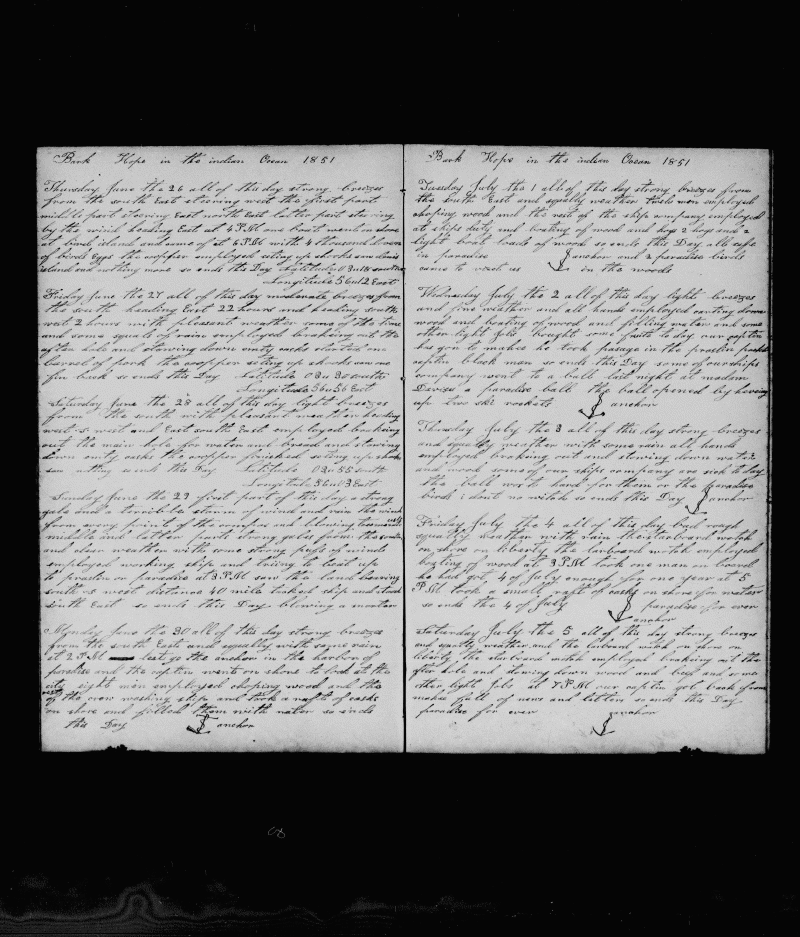 Bark Hope in the indian Ocean 1851
Thursday June the 26 all of this day strong breezes
from the south East steering west the first part
middle part steering East north East latter part steering
by the wind heading East at 4 P.M one boat went on shore
at bird island and came of at 6 P.M with 4 thousand dozen
of birds Eggs the cropper employed seting up shooks saw
island and nothing more so ends this Day Latitude 0 3 u 18 south
Longitude 56 u 12 East
Friday June the 27 all of this day moderate breezes from
the south heading East 22 hours and heading south
west 2 hours with pleasent weather some of the time
and some squals of rain employed braking out the
after hole and stowing down emty casks started one
barrel of pork the cropper seting up shooks saw one
fin back so ends this Day Latitude 0 3 u 30 south
Longitude 56 u 56 East
Saturday June the 28 all of this day light breezes
from the south with pleasent weather heading
west s west and East south East employed braking
out the main hole for water and bread and stowing
down emty casks the cropper finished seting up shooks
saw nothing so ends this Day Latitude 0 3 u 55 south
Longitude 56 u 13 East
Sunday June the 29 first part of this day a strong
gale and a terrible storm of wind and rain the wind
from every print of the compas and blowing tremendously
middle and latter part strong gales from the south
and clear weather with some strong pufs of winds
employed working ship and triing to beat up
to praslin or paradise at 3 P.M saw the land bearing
south s west distance 40 mile tacked ship and stood
south East so ends this Day blowing a mortar
Monday June the 30 all of this day strong breezes
from the south East and squally with some rain
at 2 P.M let go the anchor in the harbor of
paradise and the captin went on shore to look at the
city eight men employed choping wood and the
rest of the crew washing ship and took a raft of casks
on shore and filled them with water so ends
this Day anchor
Bark Hope in the indian Ocean 1851
Tuesday July the 1 all of this day strong breezes from
the south East and squally weather twelve men employed
choping wood and the rest of the ship company employed
at ships duty and boating of wood and hogs 2 hogs and 2
light boat loads of wood so ends this Day all safe
in paradise anchor and 2 paradise birds
came to visit us in the woods
Wednesday July the 2 all of this day light breezes
and fine weather and all hands employed cuting down
wood and boating of wood and filling water and some
other light jobs bought some fruits to day our captin
has gon to mahee he took pasage in the praslin packet
captin black man so ends this Day some of our ships
company went to a ball last night at madam
a paradise ball the ball opened by heving
up two ski rockets anchor
Thursday July the 3 all of this day strong breezes
and squally weather with some rain all hands
employed braking out and stowing down water
and wood some of our ships company are sick to day
the ball was to hard for them or the paradise
birds i dont no witch so ends this Day anchor
Friday July the 4 all of this day bad rough
squally weather with rain the starboard watch
on shore on liberty the larboard watch employed
boating of wood at 3 P.M took one man on board
he had got 4 of July enough for one year at 5
P.M took a small raft of casks on shore for water
so ends the 4 of July paradise for ever
anchor
Saturday July the 5 all of this day strong breezes
and squally weather and the larboard watch on shore on
liberty the starboard watch employed braking out the
after hole and stowing down wood and beef and some
other light jobs at 7 P.M our captin got back from
mahee full of news and letters so ends this Day
paradise for ever anchor